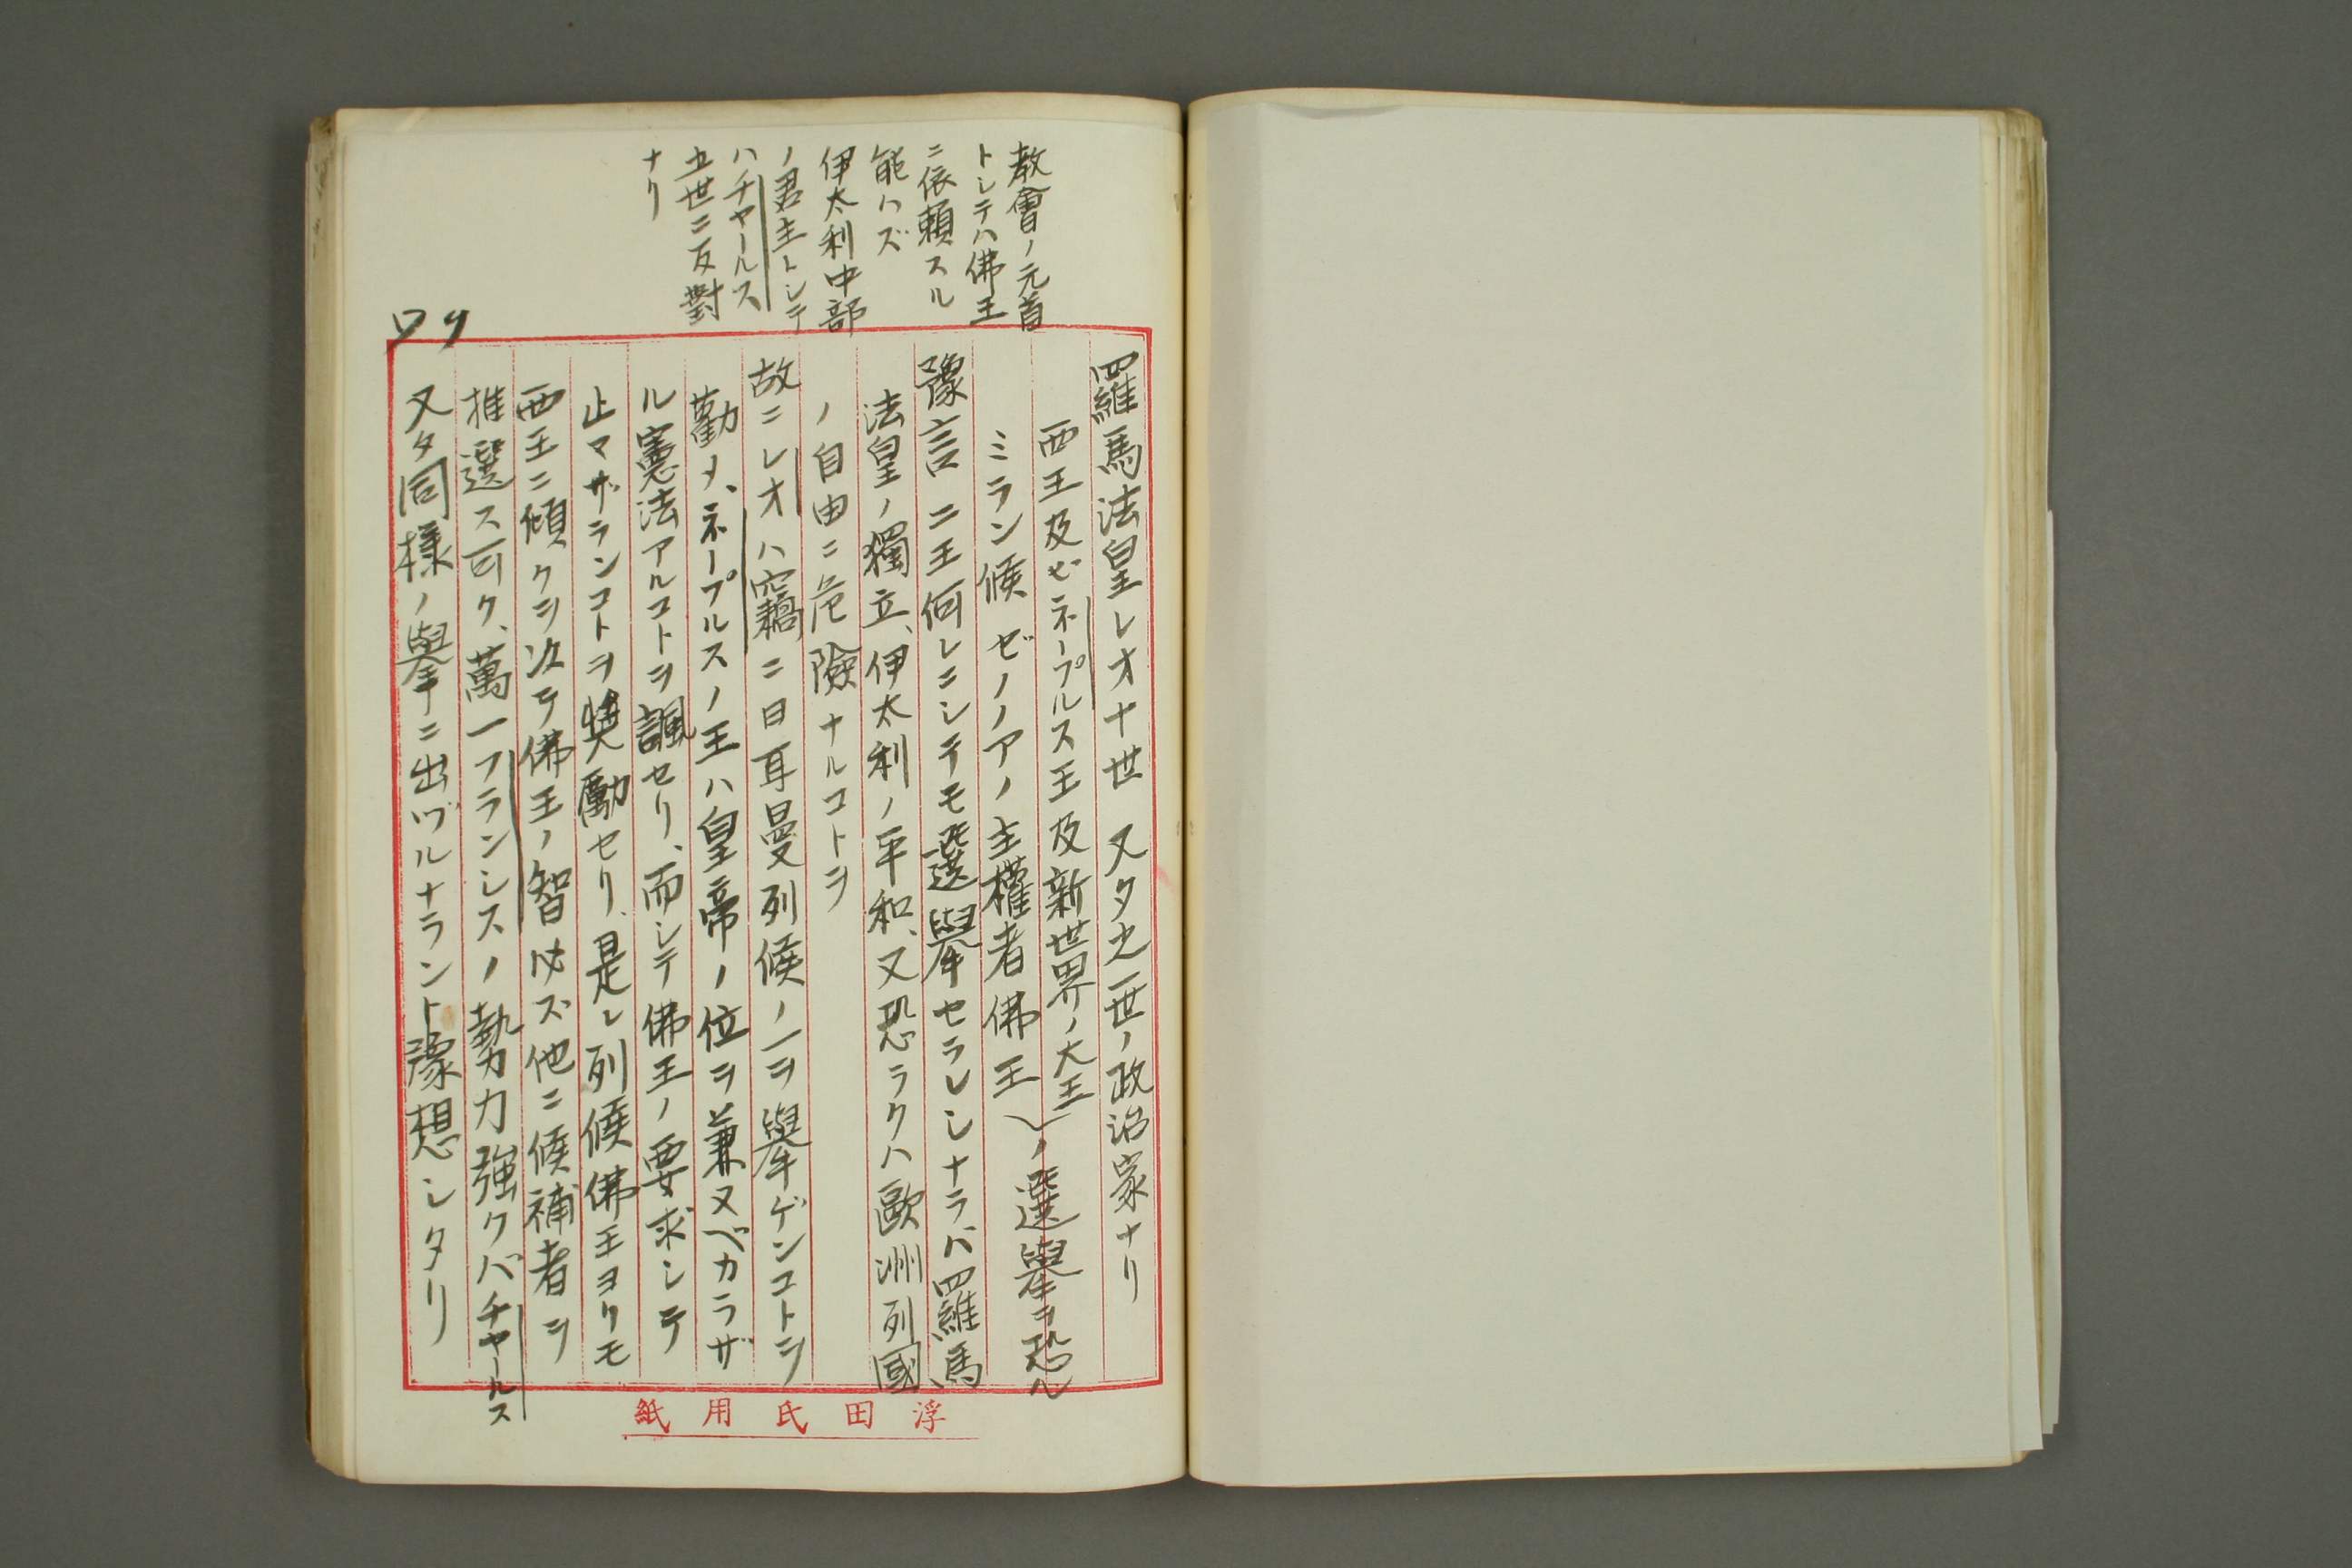 教會ノ元首
トシテハ佛王
ニ依頼スル
能ハズ
伊太利中部
ノ君主トシテ
ハチャールス
五世ニ反對
ナリ
羅馬法皇レオ十世 又タ之一世ノ政治家ナリ
西王及ビネープルス王及新世界ノ大王
ミラン候 ゼノアノ主權者佛王)ノ選擧ヲ恐ル
豫言 二王何レニシテモ選擧セラレシナラバ羅馬
法皇ノ獨立、伊太利ノ平和、又恐ラクハ歐洲列國
ノ自由ニ危險ナルコトヲ
故ニレオハ竊ニ日耳曼列候ノ一ヲ擧ゲンコトヲ
勸メ、ネープルスノ王ハ皇帝ノ位ヲ兼ヌベカラザ
ル憲法アルコトヲ諷セリ、而シテ佛王ノ要求シテ
止マザランコトヲ奬勵セリ、是レ列候佛王ヨリモ
西王ニ傾クヲ次テ佛王ノ智必ズ他ニ候補者ヲ
推選ス可ク、萬一フランシスノ勢力強クバチャールス
又タ同樣ノ擧ニ出ヅルナラント豫想シタリ
浮田氏用紙